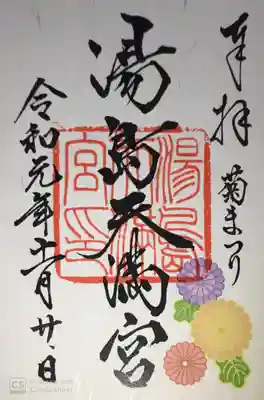 奉拝
菊まつり
湯島天満宮
湯島天満宮印
令和元年十一月廿日
CS
CamScanner